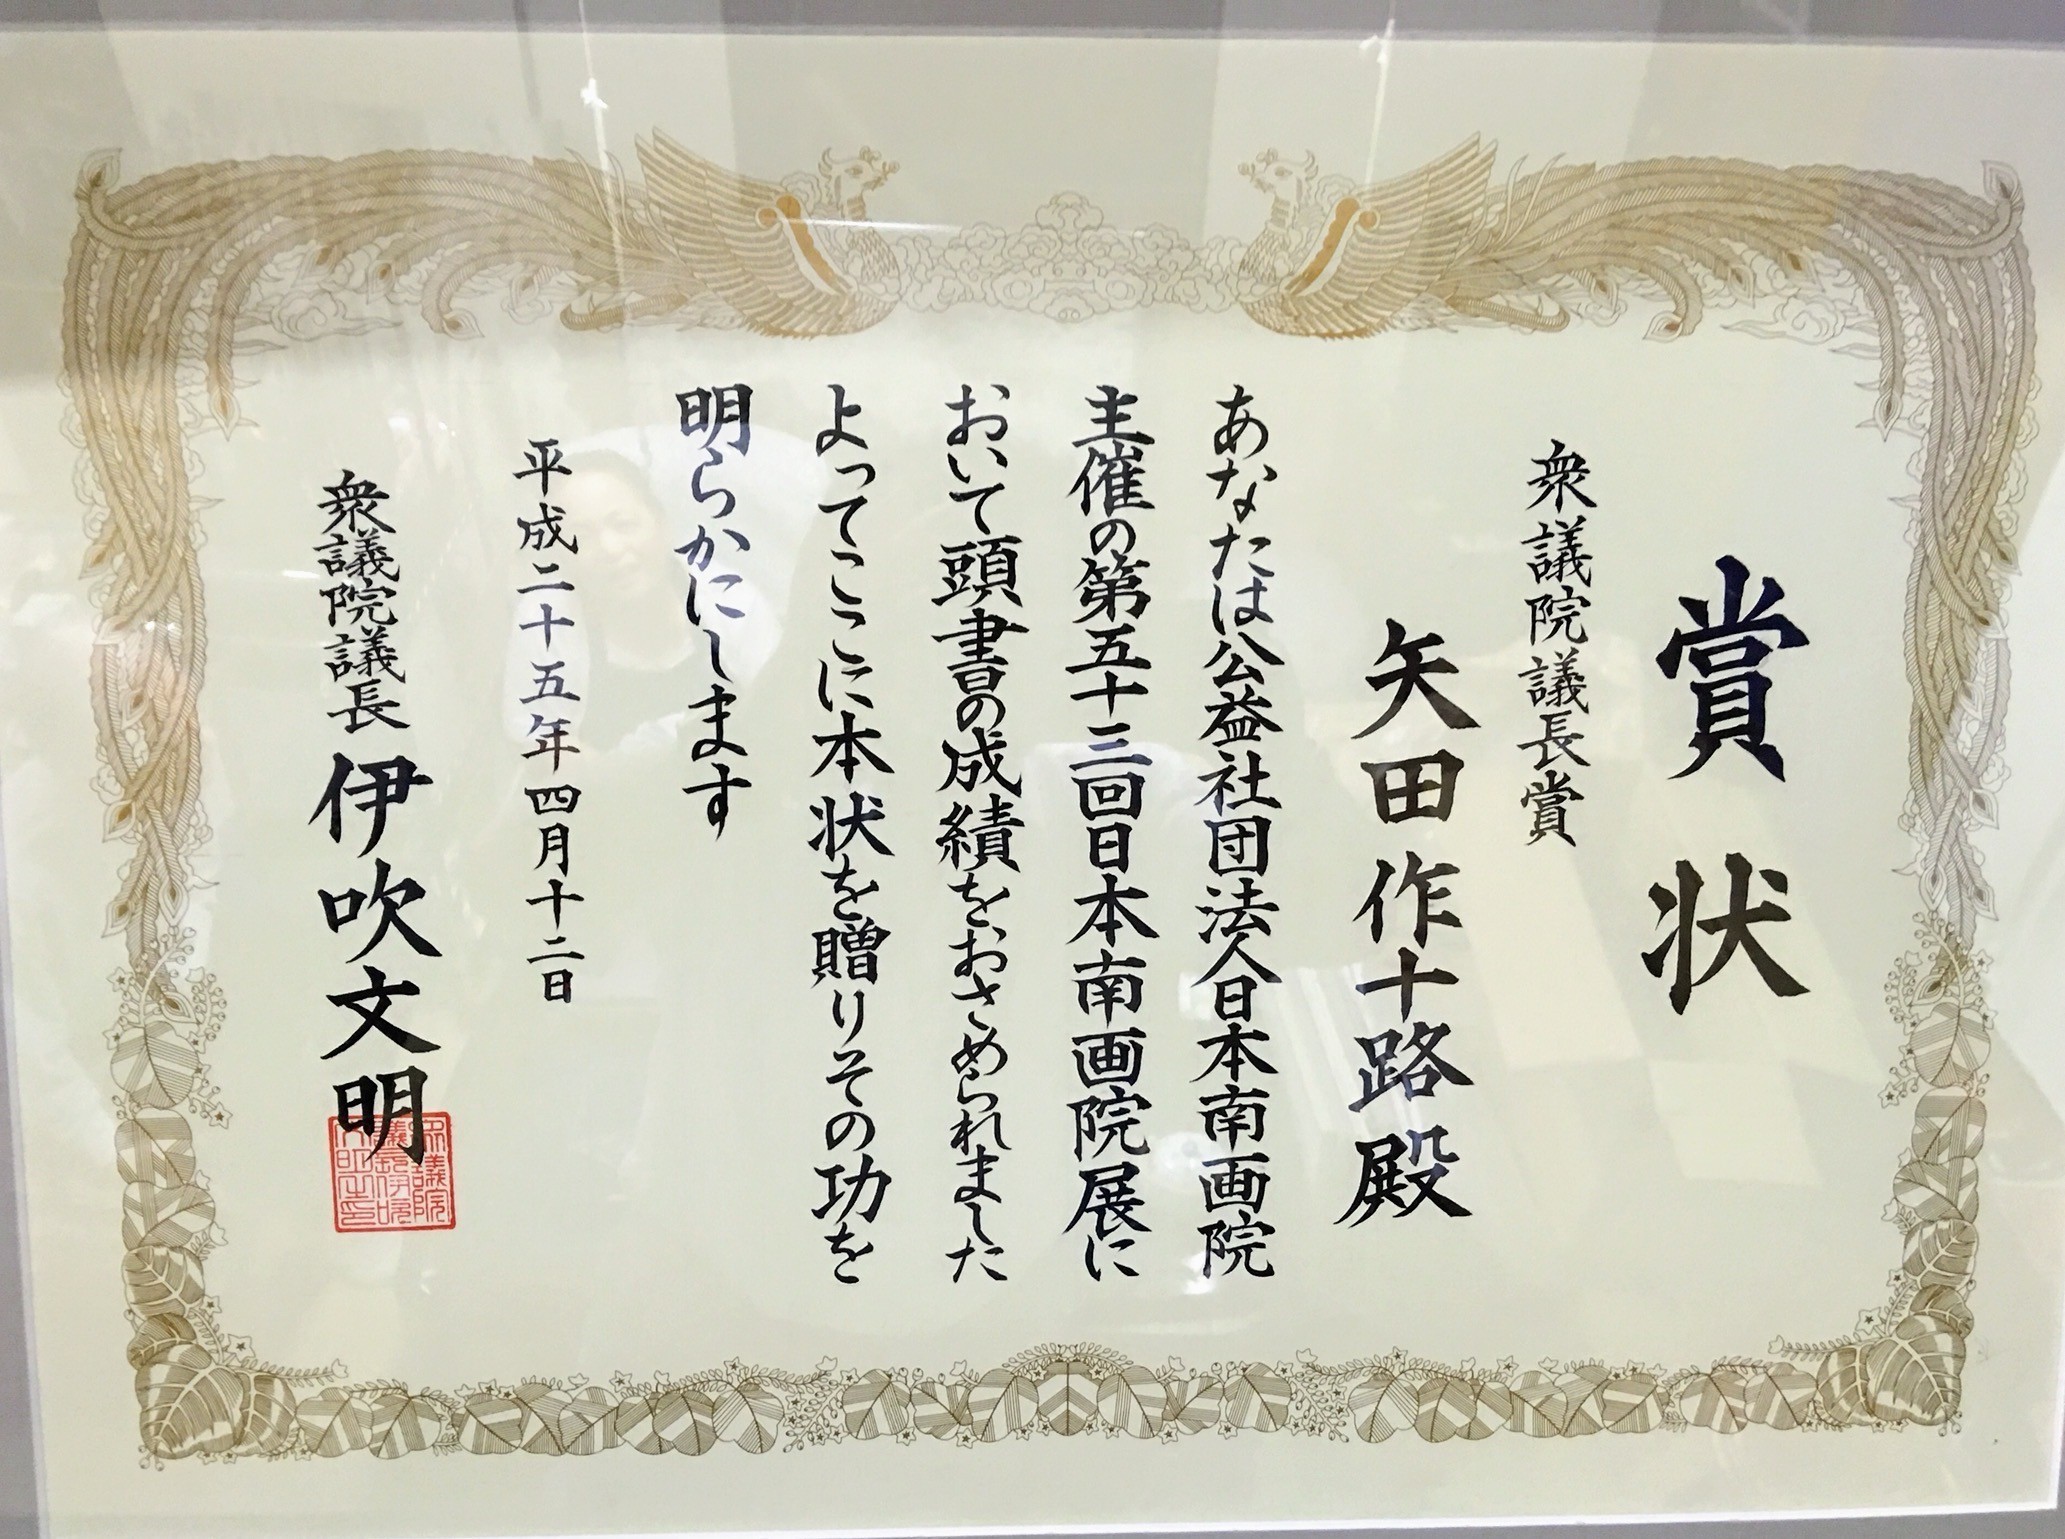 賞状
衆議院議長賞
矢田作十路殿
あなたは公益社団法人日本南画院
主催の第五十三回日本南画院展に
おいて頭書の成績をおさめられました
よってここに本状を贈りその功を
明らかにします
平成二十五年四月十二日
衆議院議長 伊吹文明